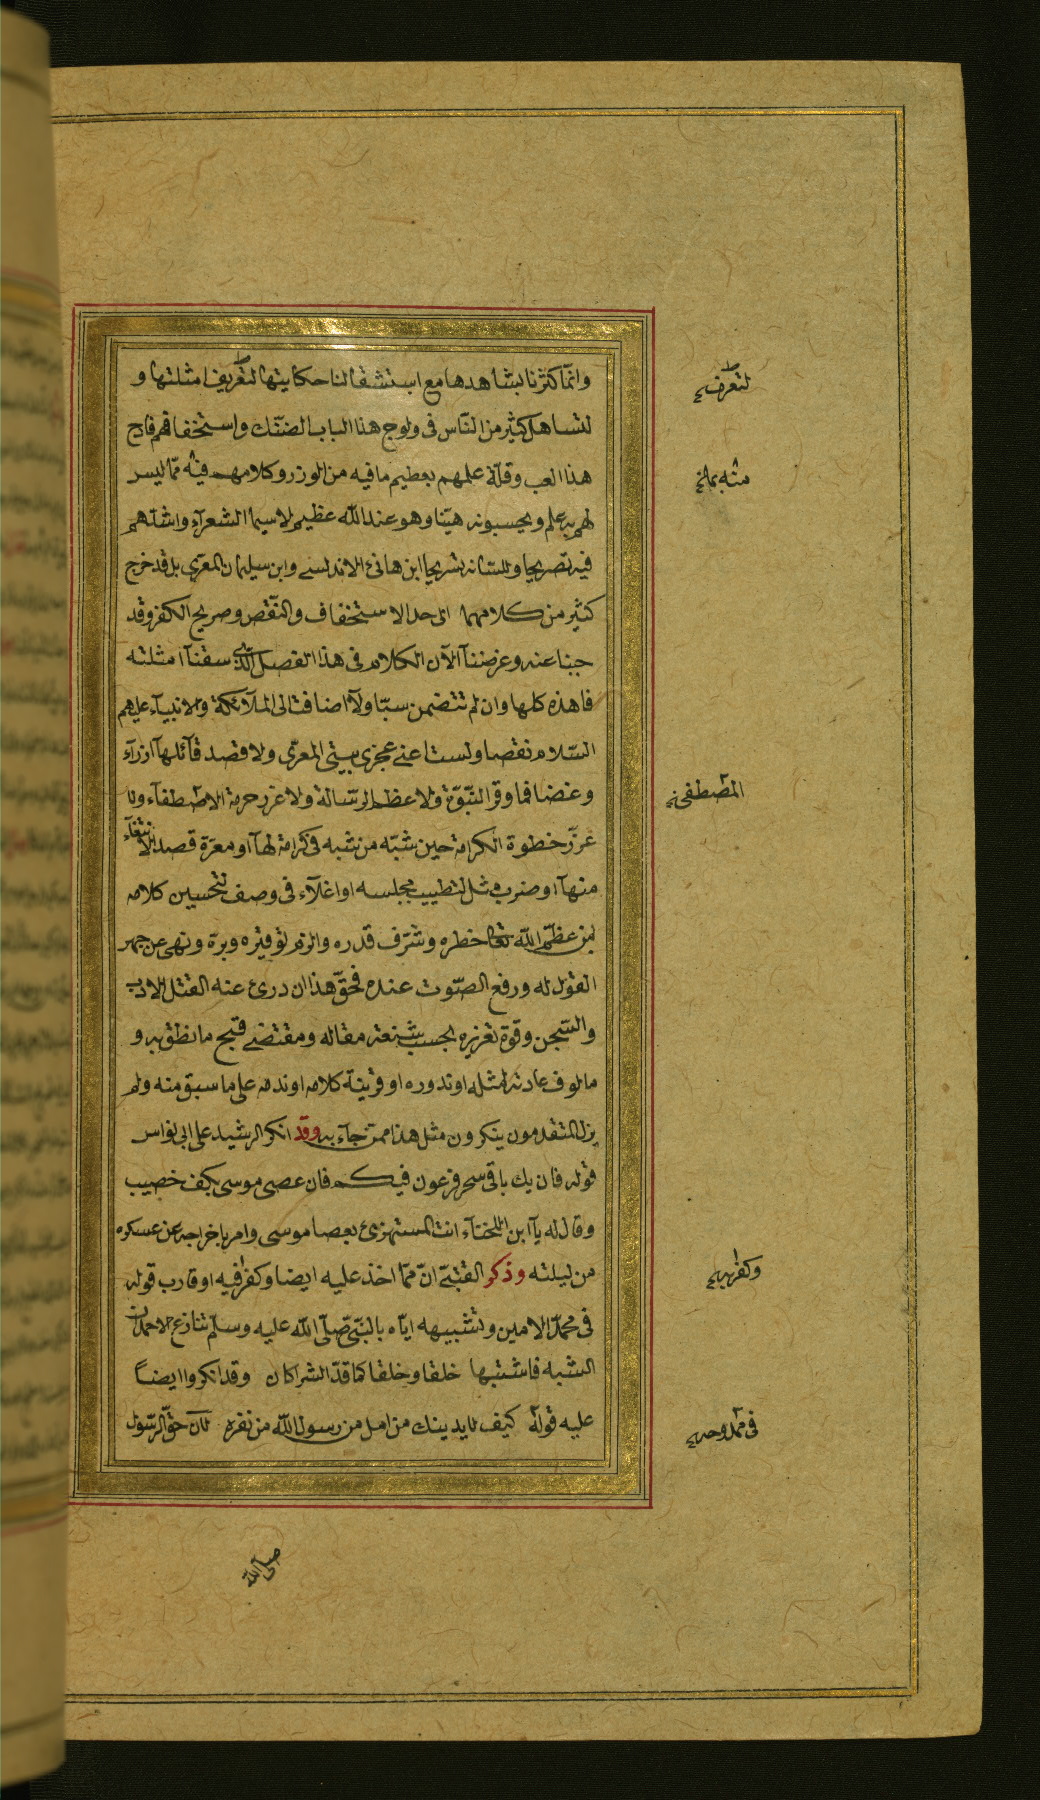 وانما كثرنا بشاهدها مع استثقالنا حكايتها لتعريف امثلتها و
لتساهل كثير من الناس فى ولوج هذا الباب الضنك واستخفافهم فادح
هذا العب وقلة علمهم بعظيم ما فيه من الوزر وكلامهم فيه مما ليس
لهم به علم ويحسبونه هينا وهو عند الله عظيم لا سيما الشعراء واشدهم
فيه تصريحا وللسانه تسريحا ابن هانئ الاندلسي وابن سليمان المعري بل قد خرج
كثير من كلامهما الى حد الاستخفاف والنقص وصريح الكفر وقد
جبنا عنه وغرضنا الآن الكلام فى هذا الفصل الذى سقنا امثلته
فاهذه كلها وان لم تتضمن سبا ولا اضافت الى الملآئكة والانبياء عليهم
السلام نقصا ولست اعني عجزى بيتى المعرى ولا قصد قآئلها ازرآء
وغضا فما وقر النبوة ولا عظم الرسالة ولا عزر حرمة الاصطفآء ولا
عزز خطوة الكرامة حين شبه من شبه فى كرامة نالها او معرة قصد الانتفآء
منهآ او ضرب مثل لتطييب مجلسه او اغلآء فى وصف لتحسين كلامه
بمن عظم الله تعالى خطره وشرف قدره والزم توقيره وبره ونهى عن جهر
القول له ورفع الصوت عنده فحق هذا ان درئ عنه القتل الادب
والسجن وقوة تعزيره بحسب شنعة مقاله ومقتضى قبح ما نطق به و
مالوف عادته لمثله او ندوره او قرينة كلامه او ندمه على ما سبق منه ولم
يزل المتقدمون ينكرون مثل هذا ممن جآء به وقد انكر الرشيد على ابى نواس
قوله فان يك باقى سحر فرعون فيكم فان عصى موسى بكف خصيب
وقال له يآ ابن اللخنآء انت المستهزئ بعصا موسى وامر باخراجه عن عسكره
من ليلته وذكر القتبى ان مما اخذ عليه ايضا وكفر فيه او قارب قوله
فى محمد الامين وتشبيهه اياه بالنبى صلى الله عليه وسلم تنازع الاحمدان
الشبه فاشتبها خلقا وخلقا كما قد الشراكان وقد انكروا ايضاً
عليه قوله كيف لا يدينك من امل من رسول الله من نفره لان حق الرسول
صلى الله
لتعرف
منه بما
المصطفى
وكفر به
فى ممدوحه